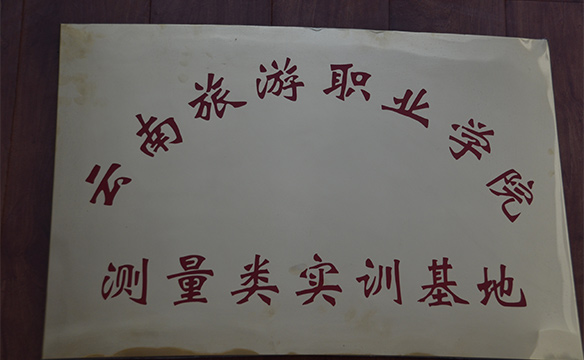 云南旅游职业学院
测量类实训基地